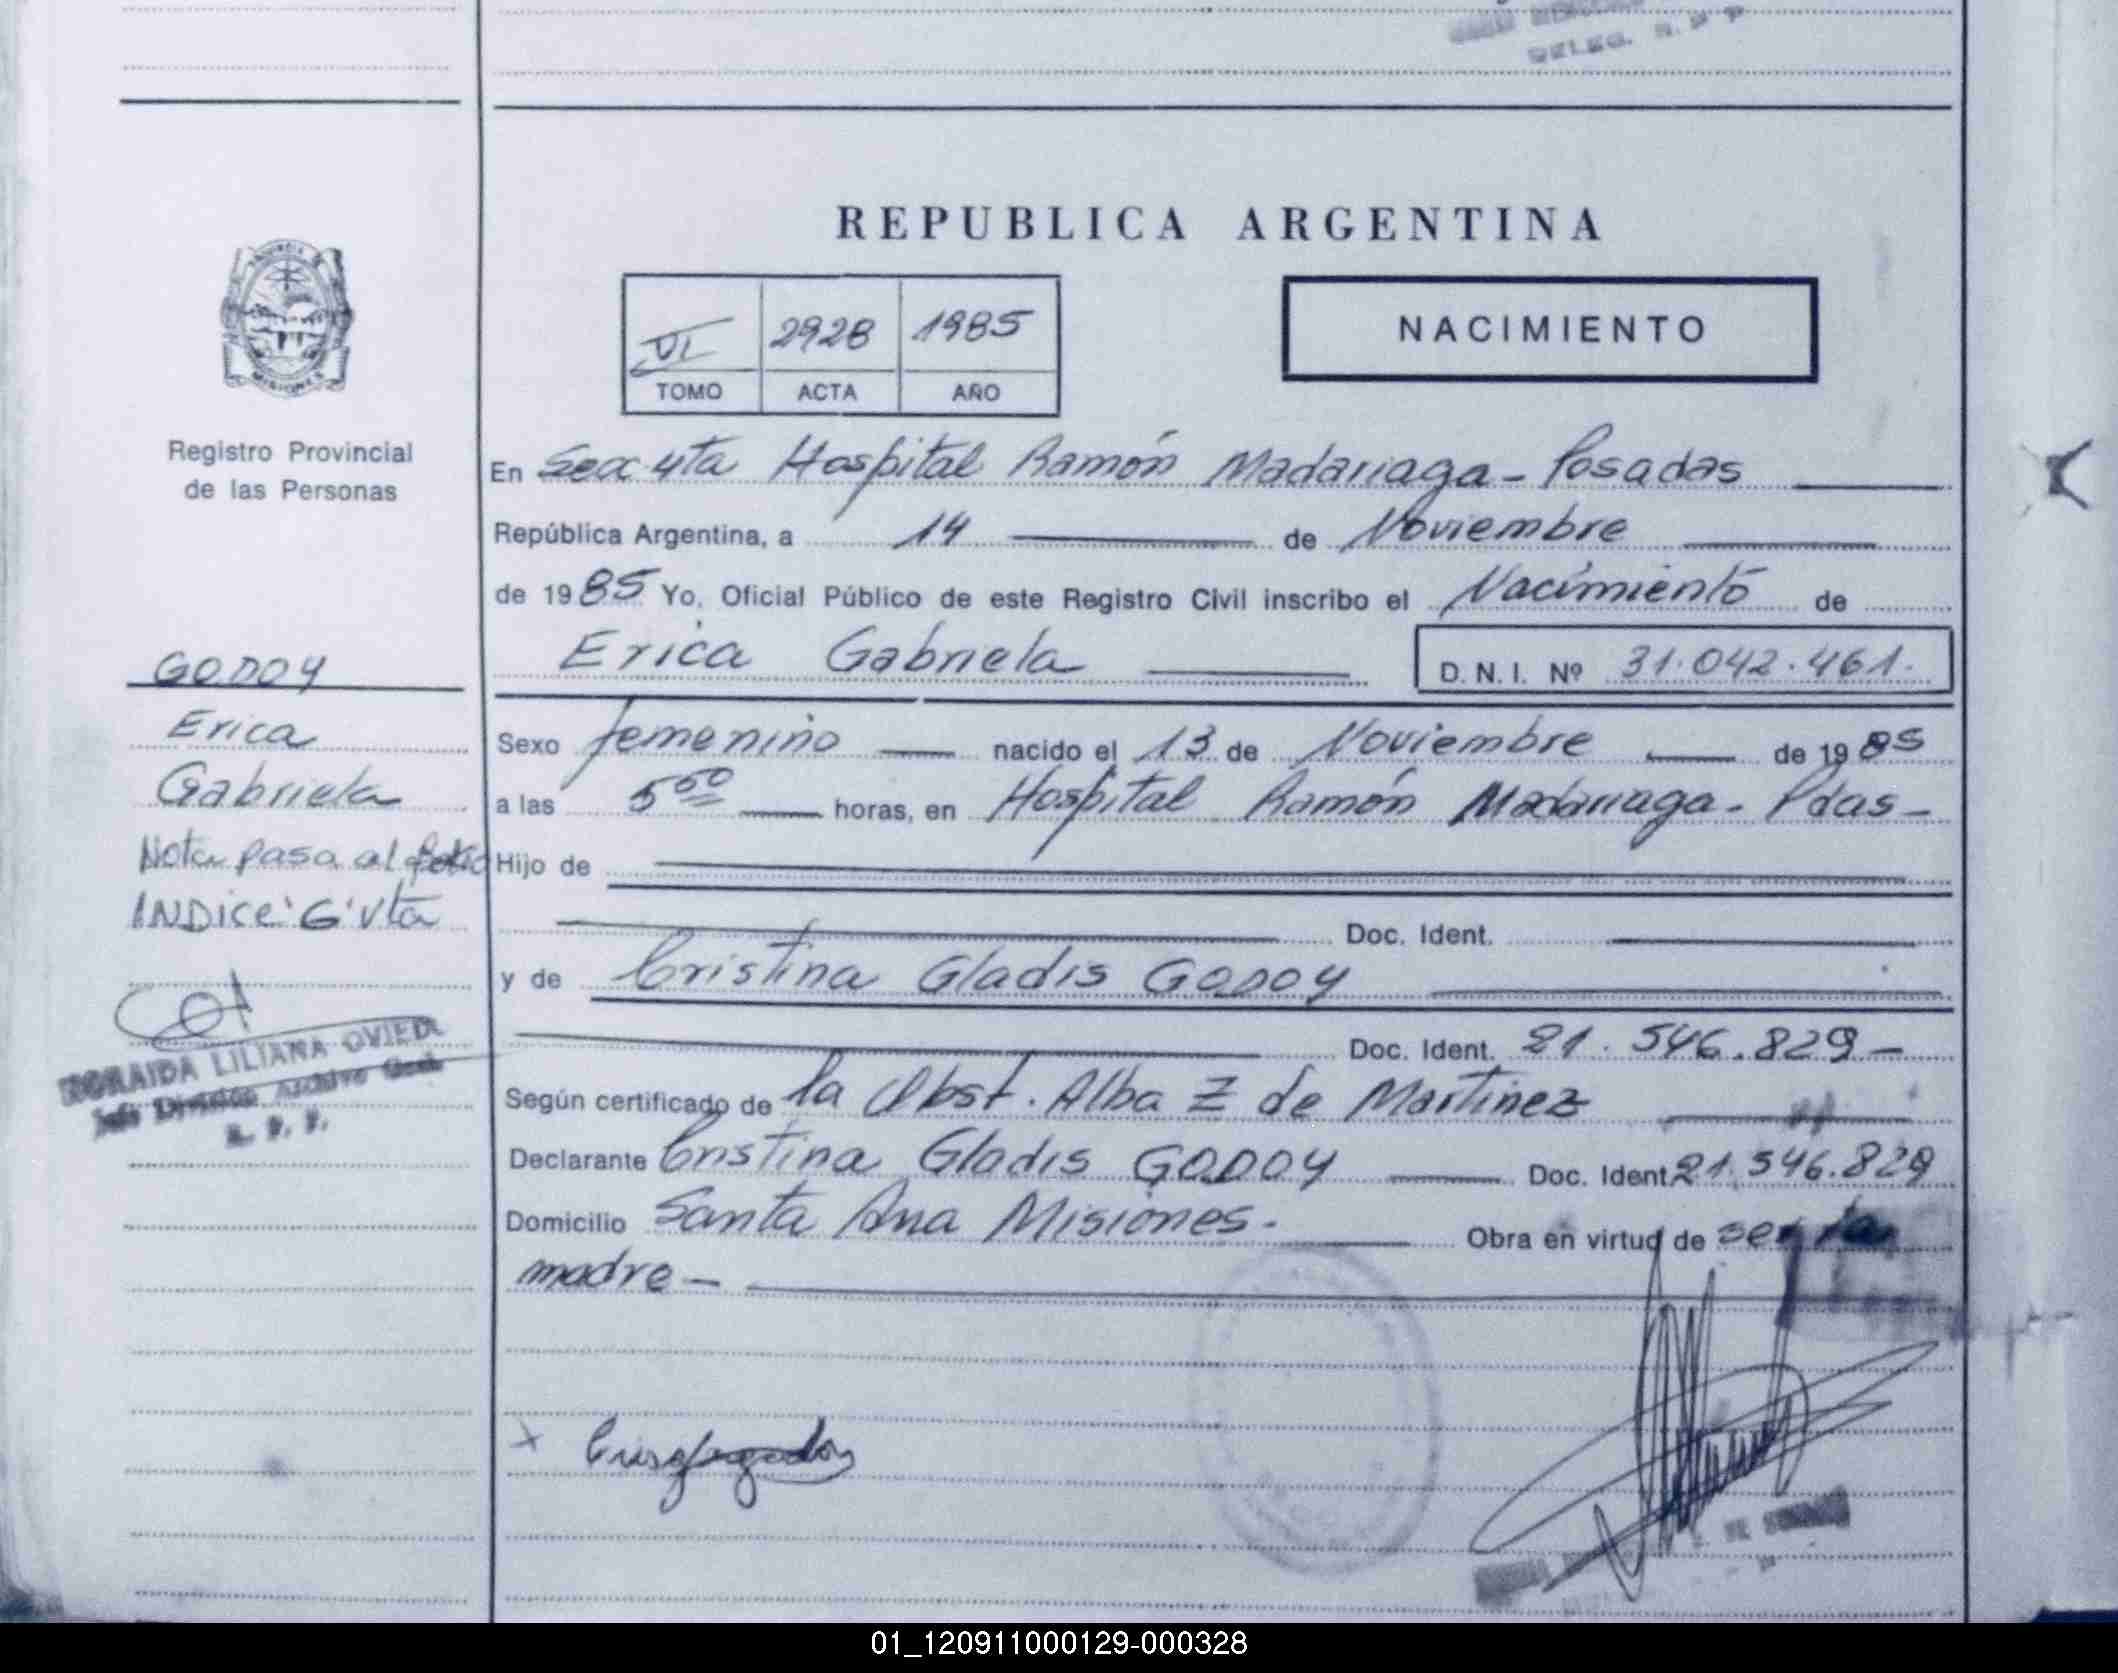 DELEG. R. N P
REPUBLICA ARGENTINA
PROVINCIA DE
MISIONES
VI 2928 1985
TOMO ACTA AÑO
NACIMIENTO
Registro Provincial
de las Personas
En Secc 4ta Hospital Ramón Madariaga - Posadas
República Argentina, a 14 de Noviembre
de 1985 Yo, Oficial Público de este Registro Civil inscribo el Nacimiento de
Erica Gabriela D. N. I. Nº 31.042.461.
GODOY
Erica
Gabriela
Nota pasa al folio
INDice 'G' vta
ZORAIDA LILIANA OVIEDO
Jefe División Archivo Gral.
R. P. P.
Sexo femenino nacido el 13 de Noviembre de 1985
a las 5 50 horas, en Hospital Ramón Madariaga - Pdas -
Hijo de
Doc. Ident.
y de Cristina Gladis GODOY
Doc. Ident. 21.546.829 -
Según certificado de la Obst. Alba Z de Martinez
Declarante Cristina Gladis GODOY Doc. Ident 21.546.829
Domicilio Santa Ana Misiones. Obra en virtud de ser la
madre -
01_120911000129-000328